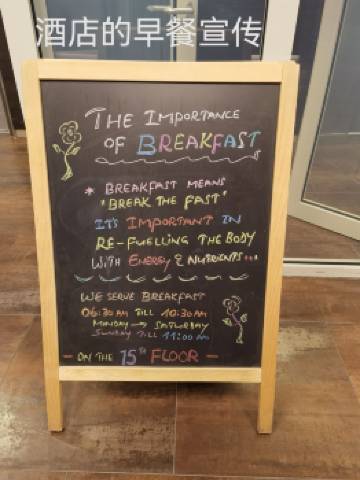 酒店的早餐宣传
THE IMPORTANCE
OF BREAKFAST
* BREAKFAST MEANS
"BREAK THE FAST"
IT'S IMPORTANT IN
RE-FUELLING THE BODY
WITH ENERGY & NUTRIENTS...
WE SERVE BREAKFAST
06:30 AM TILL 10:30 AM
MONDAY → SATURDAY
SUNDAY TILL 11:00 AM
- ON THE 15TH FLOOR -